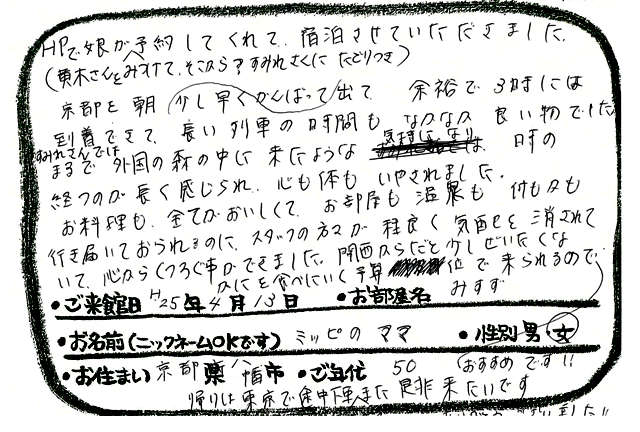 HPで娘が予約してくれて、宿泊させていただきました。
(黄木さんをみつけて、そこから?すみれさくに たどりつき)
京都を朝 少し早くがんばって出て 余裕で3時には
到着できて、長い列車の時間も なかなか 良い物でした
すみれさんでは 気持になり
まるで 外国の森の中に来たような 時の
経つのが長く感じられ、心も体も いやされました。
お料理も、全てがおいしくて、お部屋も温泉も 何もかも
行き届いておられるのに、スタッフの方々が 程良く気配を消されて
いて、心からくつろぐ事ができました。関西からだと少しぜいたくな
かにを食べにいく予算 位で来られるので、
•ご来館日 H25年4月13日 •お部屋名 みすず
•お名前(ニックネームOKです) ミッピの ママ •性別 男・女
•お住まい 京都 県 八幡市 •ご年代 50 (おすすめです!!
帰りは東京で途中下車 また是非来たいです